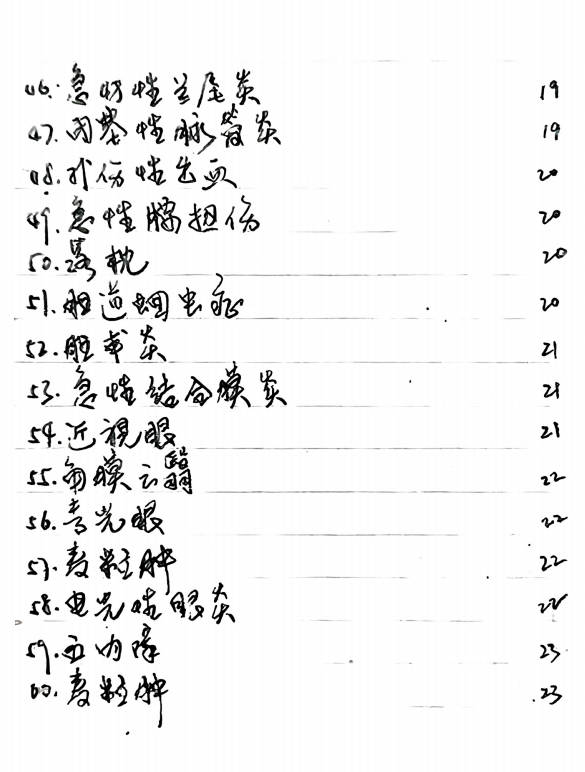 46.急妨性兰尾炎 19
47.闭塞性脉管炎 19
48.外伤性出血 20
49.急性腰扭伤 20
50.落枕 20
51.胆道蛔虫症 20
52.胆囊炎 21
53.急性结合膜炎 21
54.近視眼 21
55.角膜云翳 22
56.青光眼 22
57.麦粒肿 22
58.电光性眼炎 22
59.白内障 23
60.麦粒肿 23